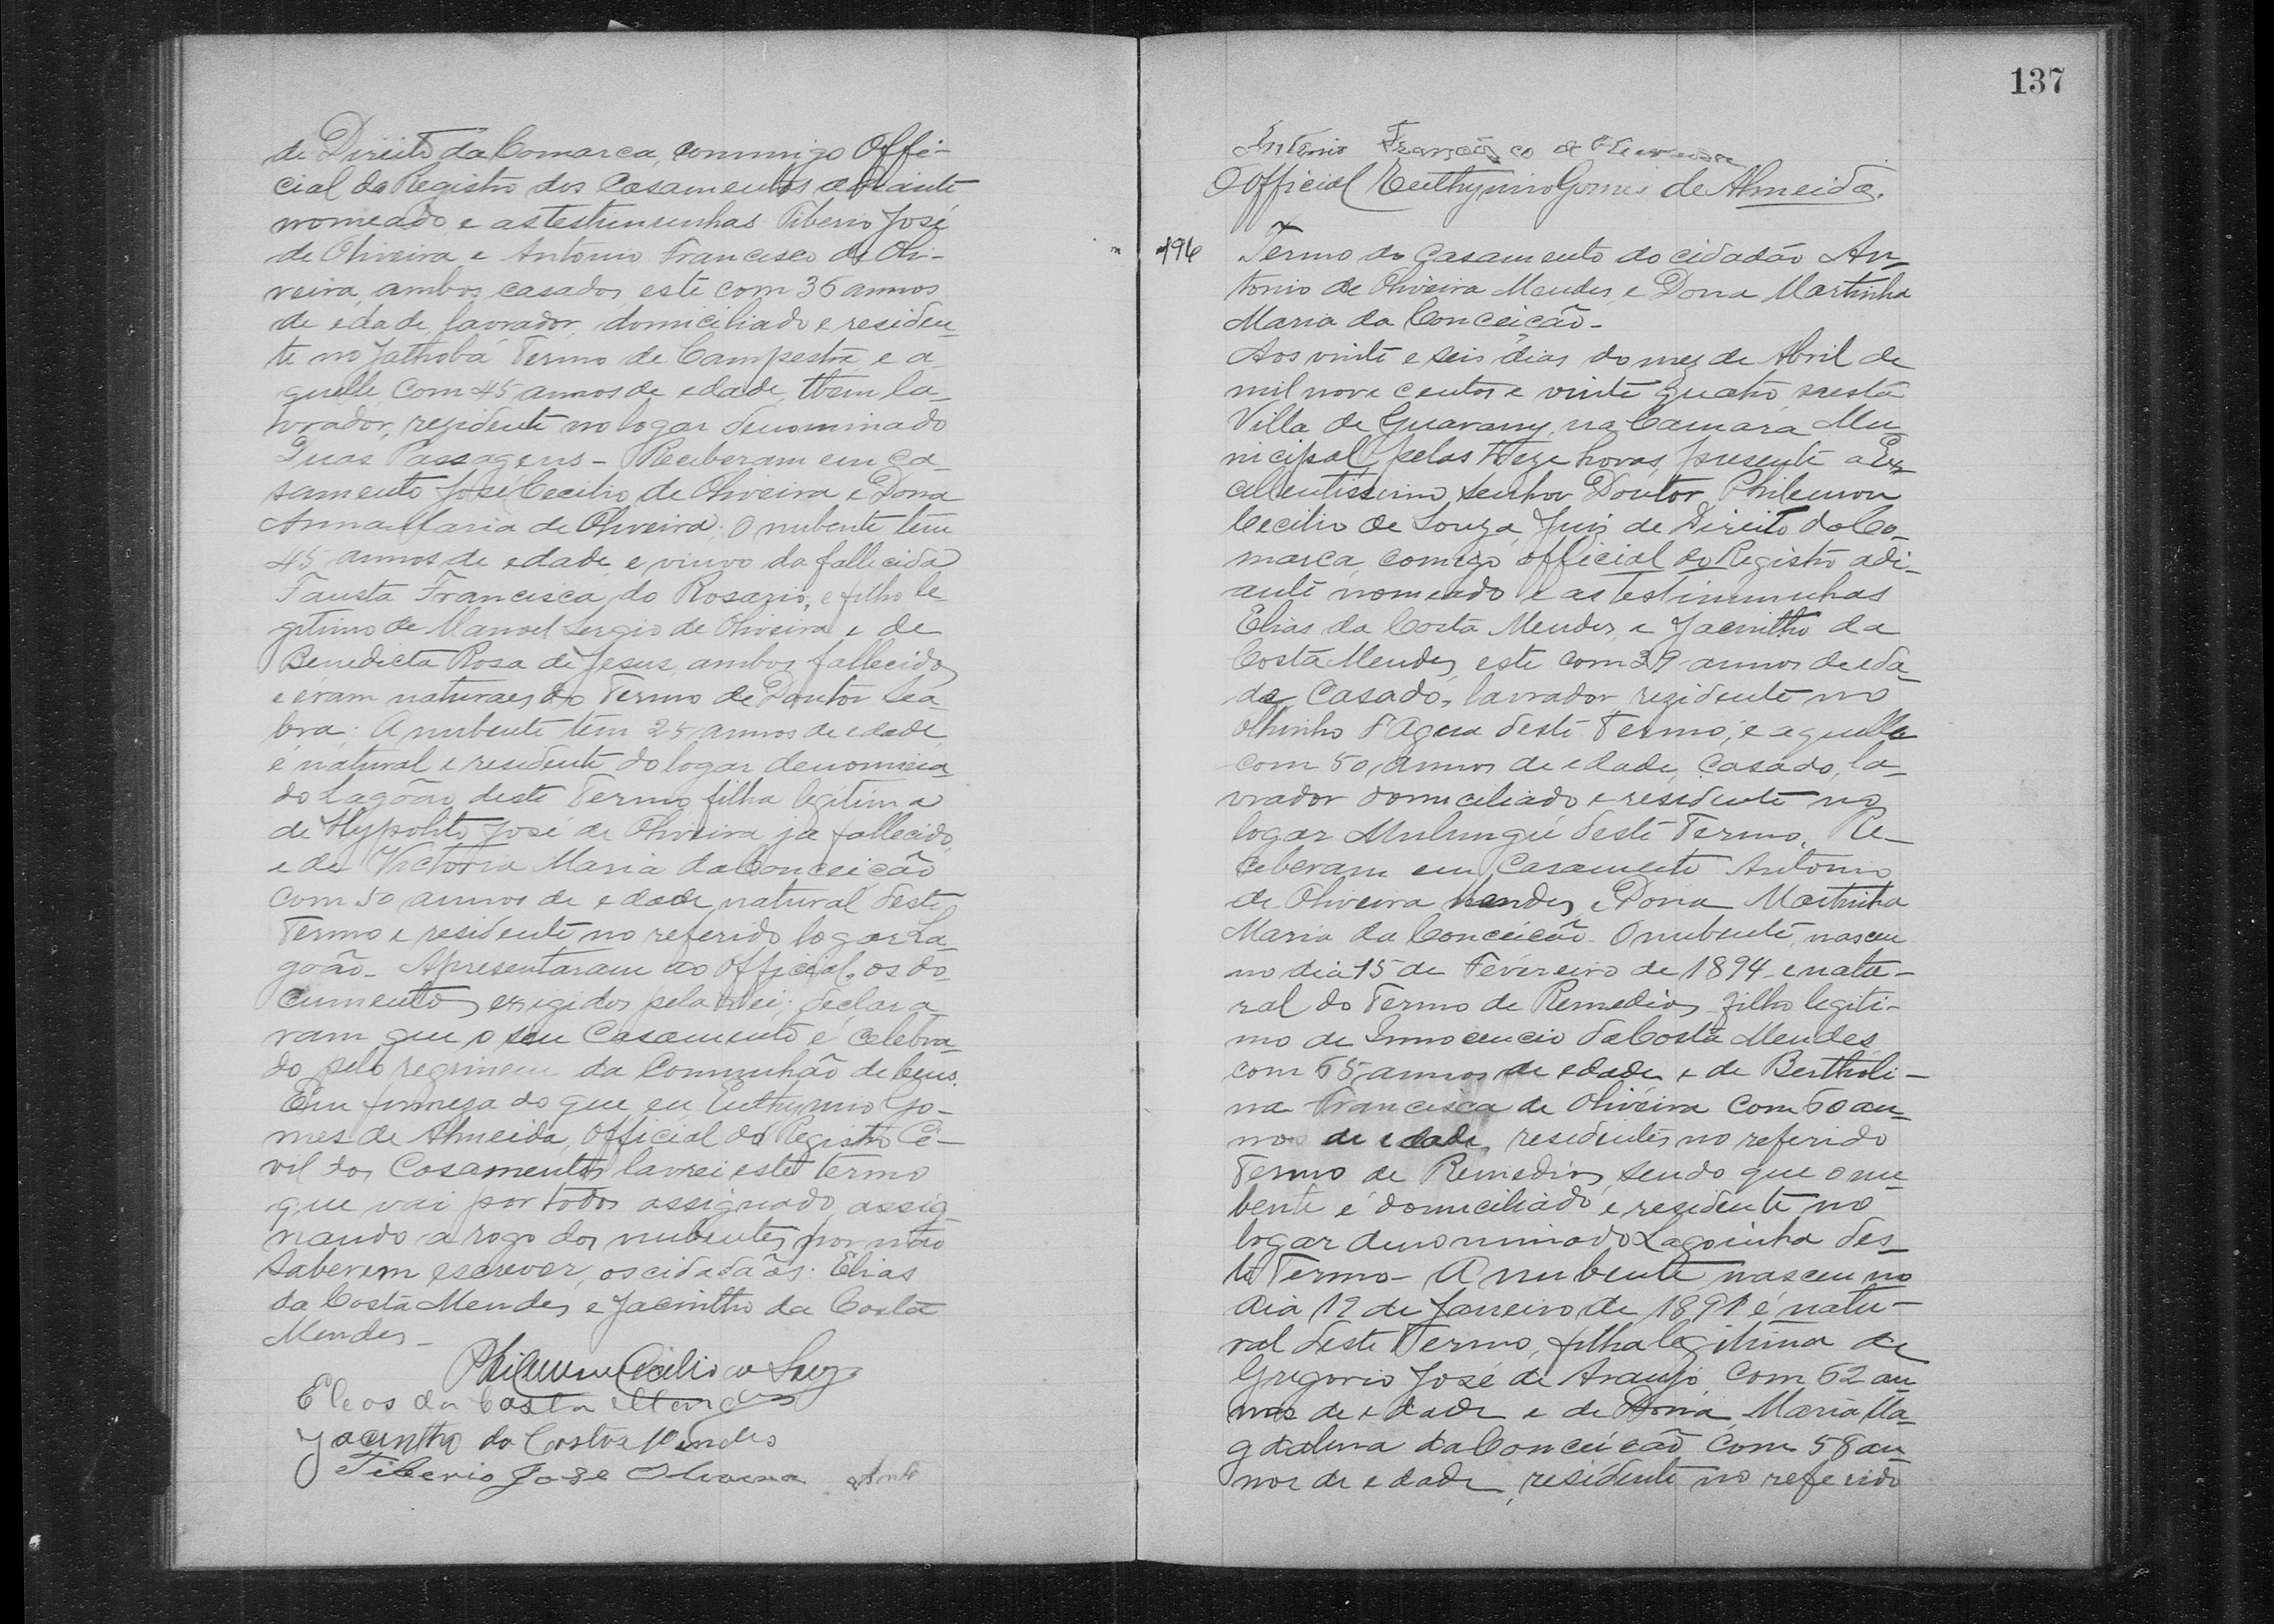 de Direito da Comarca, commigo Offi-
cial do Registro dos Casamentos adiante
nomeado e as testemunhas Tiberio José
de Oliveira e Antonio Francisco de Oli-
veira, ambos casados, este com 36 annos
de edade, lavrador, domiciliado e residen-
te no Jathobá Termo de Campestre e a-
quelle com 45 annos de edade, tbem la-
vrador, rezidente no logar denominado
Duas Passagens - Receberam em ca-
samento José Cecilio de Oliveira e Dona
Anna Maria de Oliveira; O nubente tem
45 annos de edade, e viuvo da fallecida
Fausta Francisca do Rosario, e filho le
gitimo de Manoel Sergio de Oliveira e de
Benedicta Rosa de Jesus, ambos fallecidos
e eram naturaes do Termo de Doutor Sea-
bra; A nubente tem 25 annos de edade,
é natural e residente do logar denomina-
do Lagôão deste Termo filha legitima
de Hypolito José de Oliveira já fallecido,
e de Victoria Maria da Conceição
com 50 annos de edade natural deste
Termo e residente no referido logar La-
goão - Apresentaram ao official, os do-
cumentos exigidos pela lei; declara-
ram que o seu Casamento é celebra-
do pelo regimem da Communhão de bens.
Em firmeza do que eu Euthymio Go-
mes de Almeida, Official do Registro Ci-
vil dos Casamentos lavrei este termo
que vai por todos assignado, assig-
nando a rogo dos nubentes por não
saberem escrever, os cidadãos: Elias
da Costa Mendes e Jacintho da Costa
Mendes -
Philemon Cecilio de Souza
Eleos da Costa Mendes
Jacintho da Costa Mendes
Tiberio José Oliveira Ant
137
Antonio Francisco de Oliveira
O Official Euthymio Gomes de Almeida.
196 Termo do Casamento do cidadão An-
tonio de Oliveira Mendes e Dona Martinha
Maria da Conceição -
Aos vinte e seis dias do mez de Abril de
mil nove centos e vinte quatro, nesta
Villa de Guarany, na Camara Mu-
nicipal, pelas treze horas, presente o Ex-
cellentissimo Senhor Doutor Philemon
Cecilio de Souza, Juiz de Direito da Co-
marca, comigo official do Registro adi-
ante nomeado e as testimunhas
Elias da Costa Mendes e Jacintho da
Costa Mendes, este com 39 annos de eda-
de, Casado, lavrador, rezidente no
Olhinho d'Agua deste Termo; e aquelle
com 50 annos de edade, Casado, la-
vrador domiciliado e residente no
logar Mulungú deste Termo. Re-
ceberam em Casamento Antonio
de Oliveira Mendes e Dona Martinha
Maria da Conceição - O nubente, nasceu
no dia 15 de Fevereiro de 1894 - e natu-
ral do Termo de Remedios filho legiti-
mo de Innocencio da Costa Mendes
com 65 annos de edade e de Bertholi-
na Francisca de Oliveira com 60 an-
nos de edade, residentes no referido
Termo de Remedios, sendo que o nu-
bente é domiciliado e residente no
logar denominado Lagoinha des-
te Termo - A nubente nasceu no
dia 12 de Janeiro de 1891 é natu-
ral deste Termo, filha legitima de
Gregorio José de Araujo, com 62 an-
nos de edade e de Dona Maria Ma-
gdalena da Conceição com 58 an-
nos de edade, residente no referido